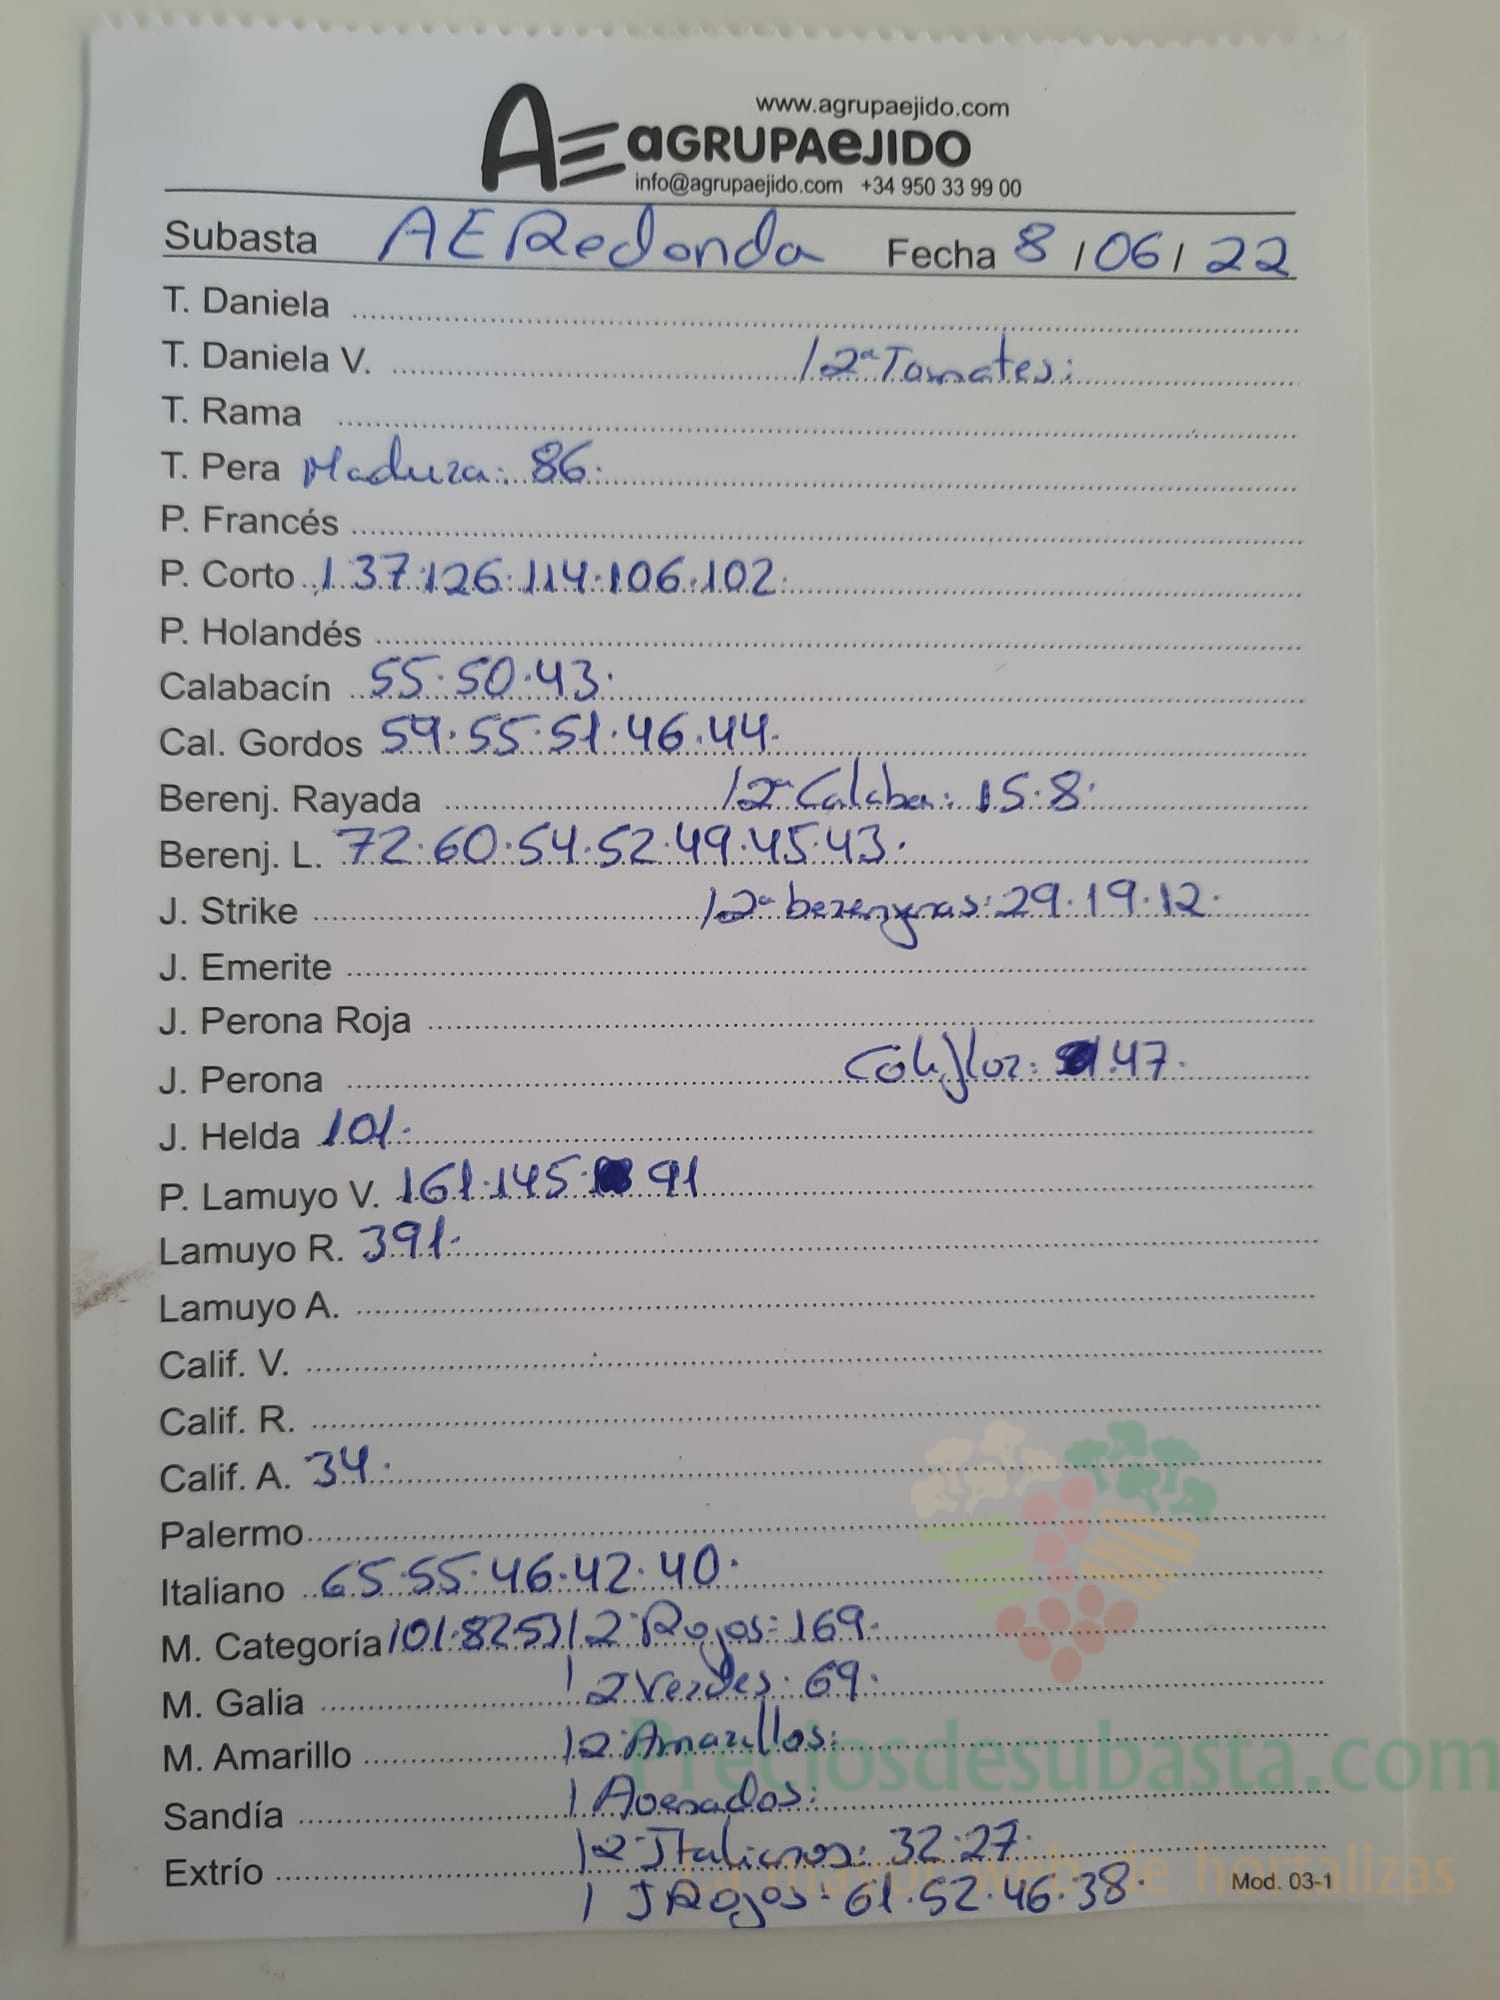 www.agrupaejido.com
AE aGRUPAeJIDO
info@agrupaejido.com +34 950 33 99 00
Subasta AERedonda Fecha 8/06/22
T. Daniela
T. Daniela V. /2ª Tomates:
T. Rama
T. Pera Madura: 86.
P. Francés
P. Corto 137.126.114.106.102.
P. Holandés
Calabacín 55.50.43.
Cal. Gordos 59.55.51.46.44.
Berenj. Rayada /2ª Calaba: 15.8.
Berenj. L. 72.60.54.52.49.45.43.
J. Strike /2ª berenjenas: 29.19.12.
J. Emerite
J. Perona Roja
J. Perona Coliflor: 47.
J. Helda 101.
P. Lamuyo V. 161.145. 91
Lamuyo R. 391.
Lamuyo A.
Calif. V.
Calif. R.
Calif. A. 34.
Palermo
Italiano 65.55.46.42.40.
M. Categoría 101.82.53 / 2ª Rojos: 169.
M. Galia / 2 Verdes: 69.
M. Amarillo / 2 Amarillos:
Sandía / Asenados:
Extrío / 2 Italianos: 32.27.
/ J Rojos: 61.52.46.38.
Mod. 03-1
Preciosdesubasta.com
La mayor web de hortalizas